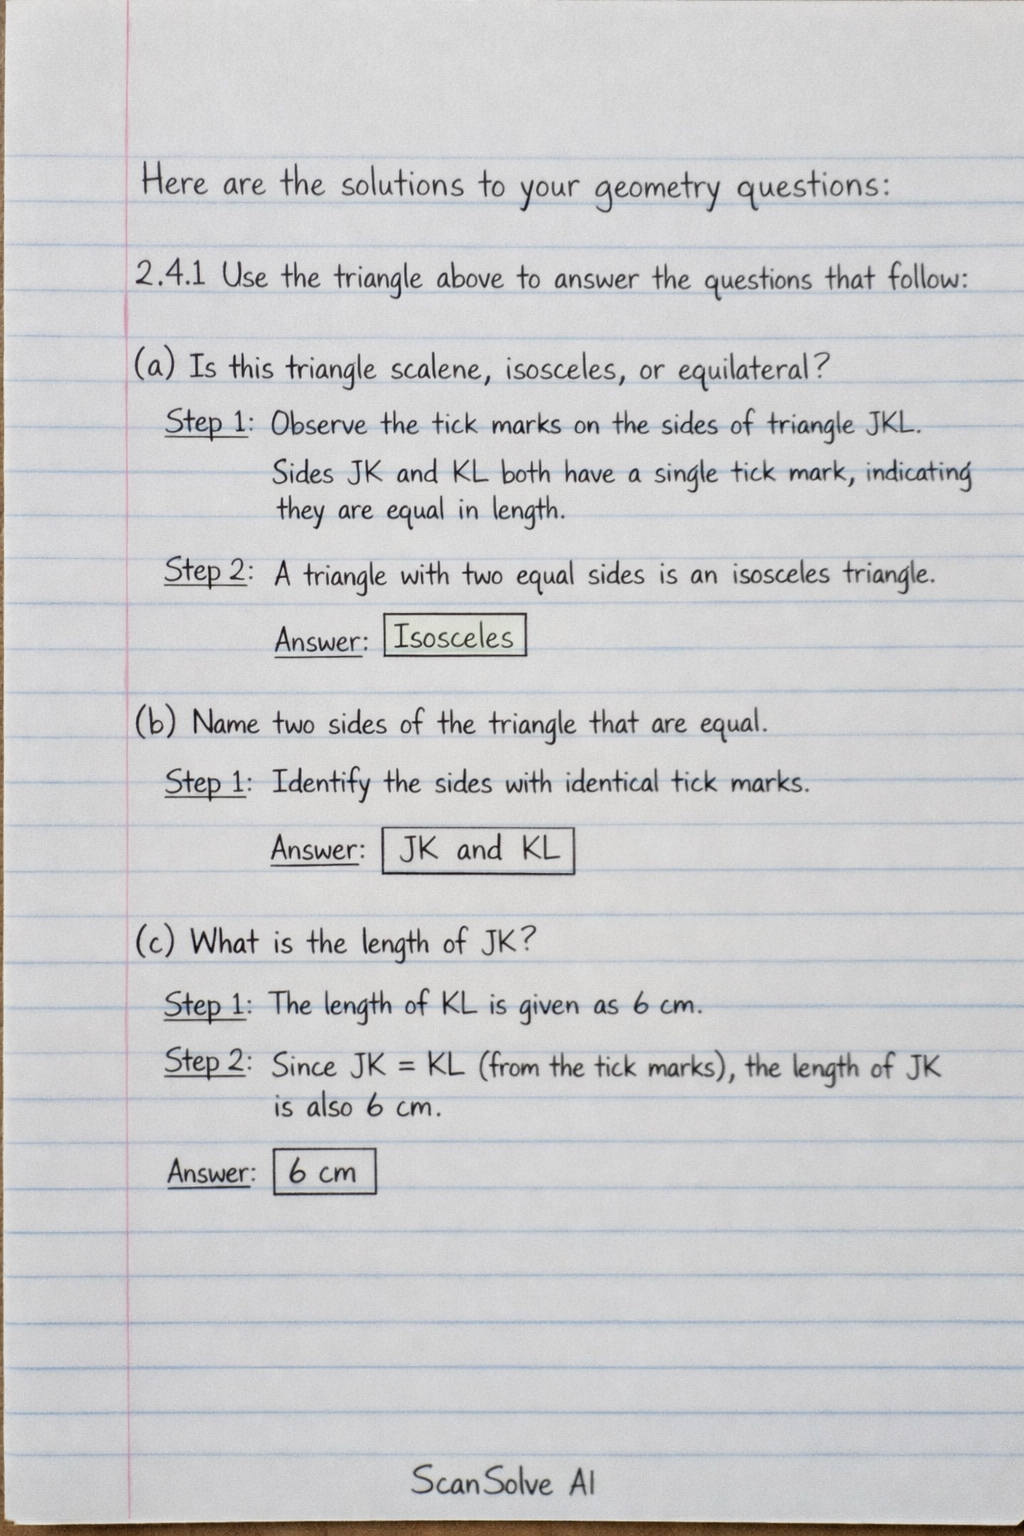 Here are the solutions to your geometry questions:
2.4.1 Use the triangle above to answer the questions that follow:
(a) Is this triangle scalene, isosceles, or equilateral?
Step 1: Observe the tick marks on the sides of triangle JKL.
Sides JK and KL both have a single tick mark, indicating
they are equal in length.
Step 2: A triangle with two equal sides is an isosceles triangle.
Answer: Isosceles
(b) Name two sides of the triangle that are equal.
Step 1: Identify the sides with identical tick marks.
Answer: JK and KL
(c) What is the length of JK?
Step 1: The length of KL is given as 6 cm.
Step 2: Since JK = KL (from the tick marks), the length of JK
is also 6 cm.
Answer: 6 cm
ScanSolve AI